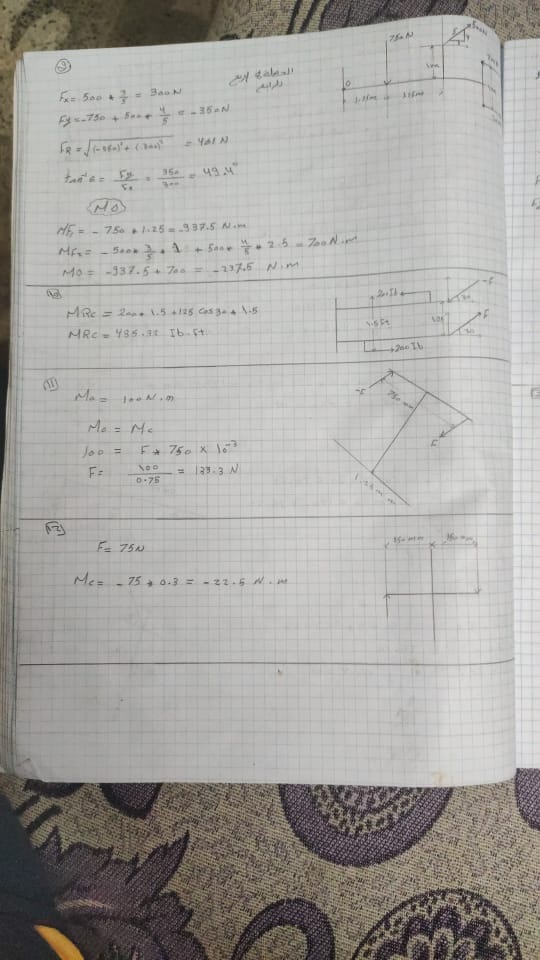 9
Fx = 500 * 3/5 = 300 N
Fy = -750 + 500 * 4/5 = -350 N
FR = √(-350)² + (300)² = 461 N
tan⁻¹ θ = Fy/Fx = 350/300 = 49.4°
MO
MF1 = - 750 * 1.25 = -937.5 N.m
MF2 = - 500 * 3/5 * 1 + 500 * 4/5 * 2.5 = 700 N.m
MO = -937.5 + 700 = -237.5 N.m
750 N
1m
O
1.25m
10
MRc = 200 * 1.5 + 125 cos 30 * 1.5
MRc = 485.32 Ib.Ft
200 Ib
-F
30
1.5 Ft
F
30
200 Ib
11
Ma = 100 N.m
Ma = Mc
100 = F * 750 × 10⁻³
F = 100/0.75 = 133.3 N
-F
750 mm
F
12
F = 75 N
Mc = - 75 * 0.3 = - 22.5 N.m